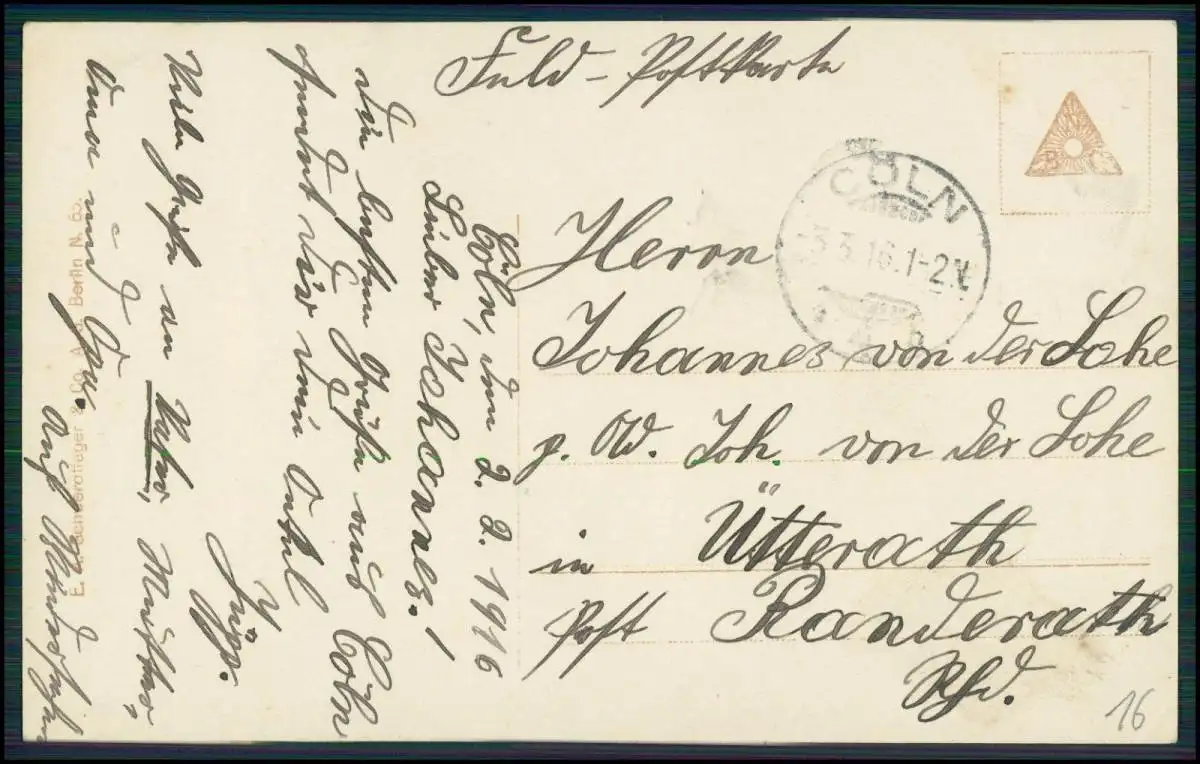 Feld-Postkarte
CÖLN
3.3.16.1-2N.
Herrn
Johannes von der Lohe
p. Ad. Joh. von der Lohe
in Ütterath
Post Randerath
Rhld.
16
Cöln, den 2. 2. 1916
Lieber Johannes!
Die besten Grüße aus Cöln
sendet Dir dein Onkel
Jüpp.
Viele Grüße an Vater, Mutter,
Oma und Opa. Auf Wiedersehn
Berlin N.